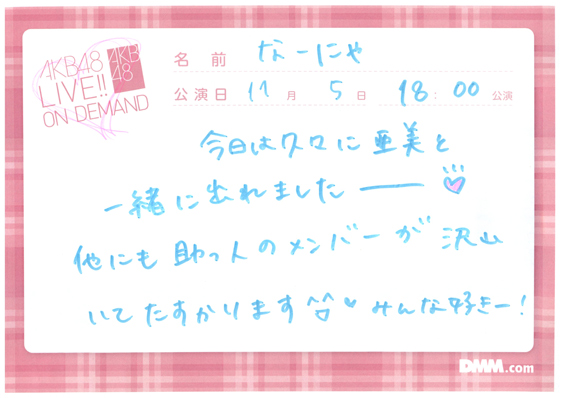 AKB48
LIVE!!
ON DEMAND
AKB
48
名前 なーにゃ
公演日 11月 5日 18:00 公演
今日は久々に亜美と
一緒に出れましたーー
他にも助っ人のメンバーが沢山
いてたすかります^^ みんな好きー!
DMM.com